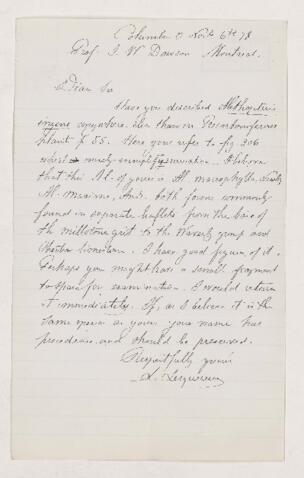 Columbus O Nov 6th 78
Prof J. W. Dawson Montreal
Dear Sir
Have you described Alethopteris
anywhere else than in Precarboniferous
plants p 55. Here you refer to fig 306
which
that this Al. of yours is Al. macrophylla, Newby
Al. maxima, And. both forms commonly
found in separate leaflets from the base of
the millstone grit to the Waverly group and
Chester limestone. I have good figures of it.
Perhaps you might have a small fragment
to spare for examination. I would return
it immediately. If, as I believe it is the
same species as yours your name has
precedence and should be preserved.
Respectfully yours
L. Lesquereux